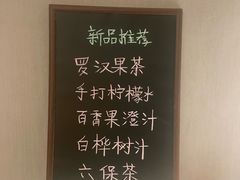 新品推荐
罗汉果茶
手打柠檬水
百香果橙汁
白桦树汁
六保茶